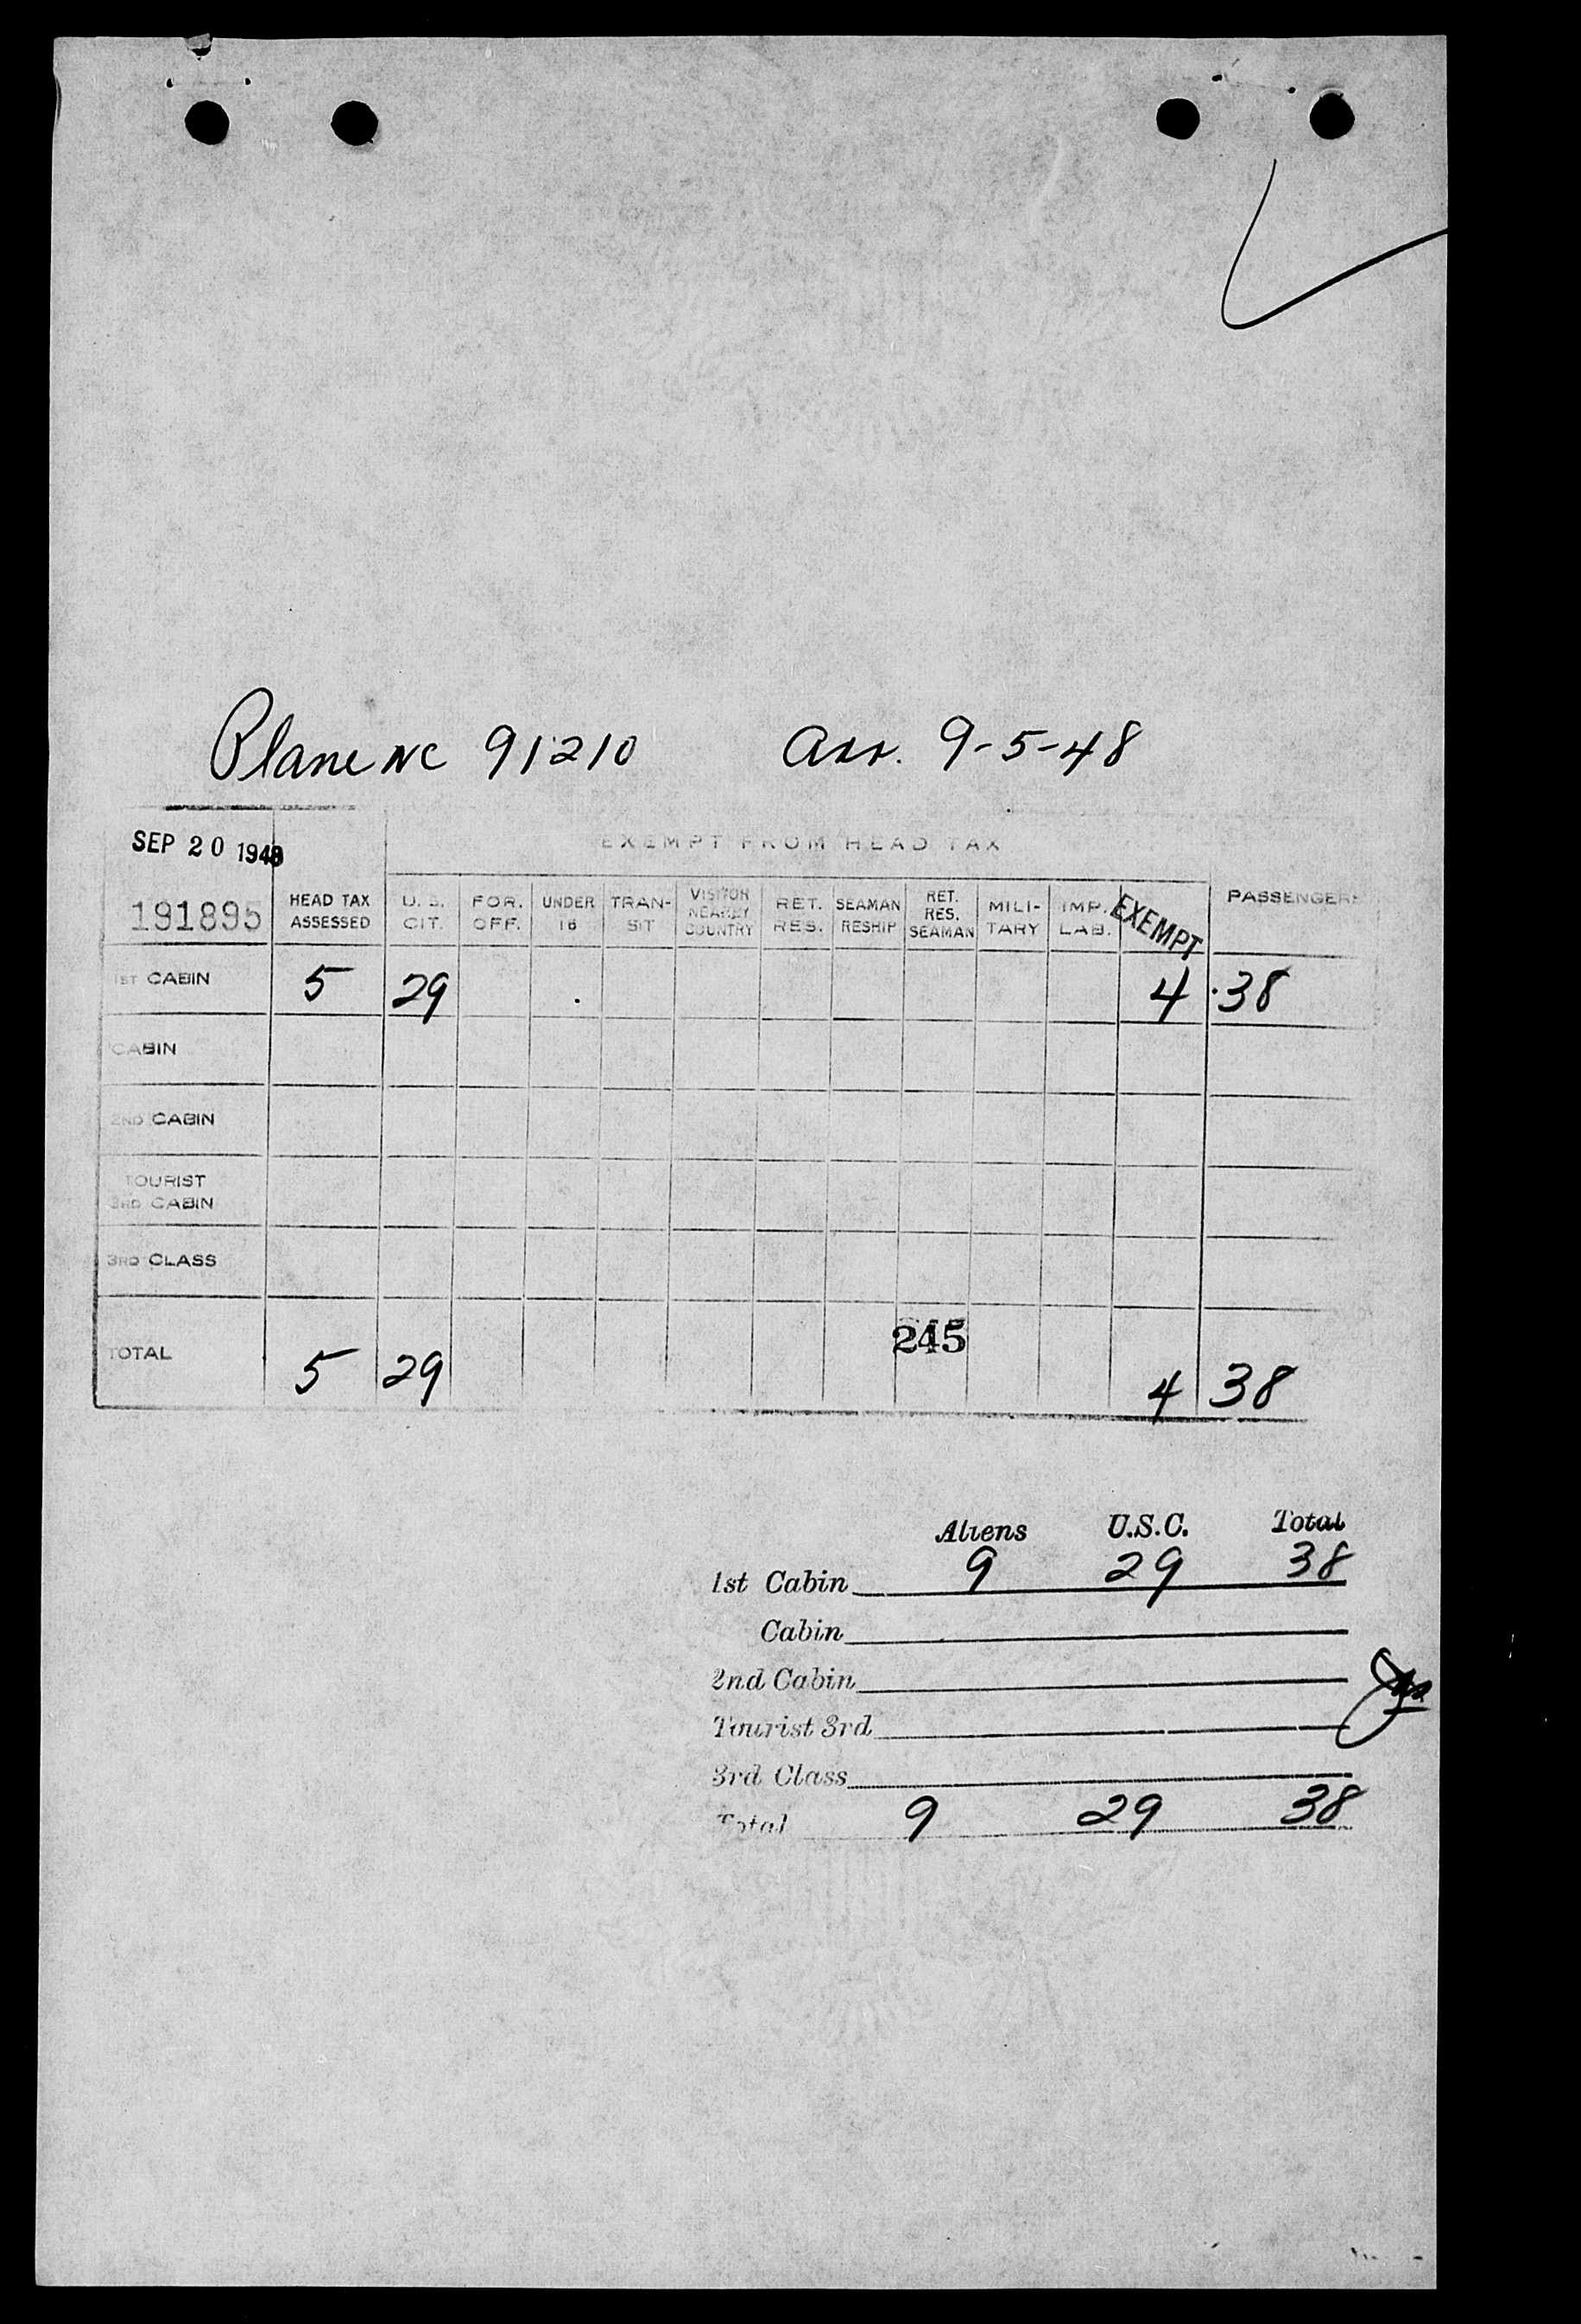 Plane NC 91210 Arr. 9-5-48
SEP 20 1948
EXEMPT FROM HEAD TAX
191895 HEAD TAX ASSESSED U.S. CIT. FOR. OFF. UNDER 16 TRAN-SIT VISITOR NEARBY COUNTRY RET. RES. SEAMAN RESHIP RET. RES. SEAMAN MILI-TARY IMP. LAB. EXEMPT PASSENGERS
1ST CABIN 5 29 4 38
CABIN
2ND CABIN
TOURIST
3RD CABIN
3RD CLASS
245
TOTAL 5 29 4 38
Aliens U.S.C. Total
1st Cabin 9 29 38
Cabin
2nd Cabin
Tourist 3rd
3rd Class
Total 9 29 38